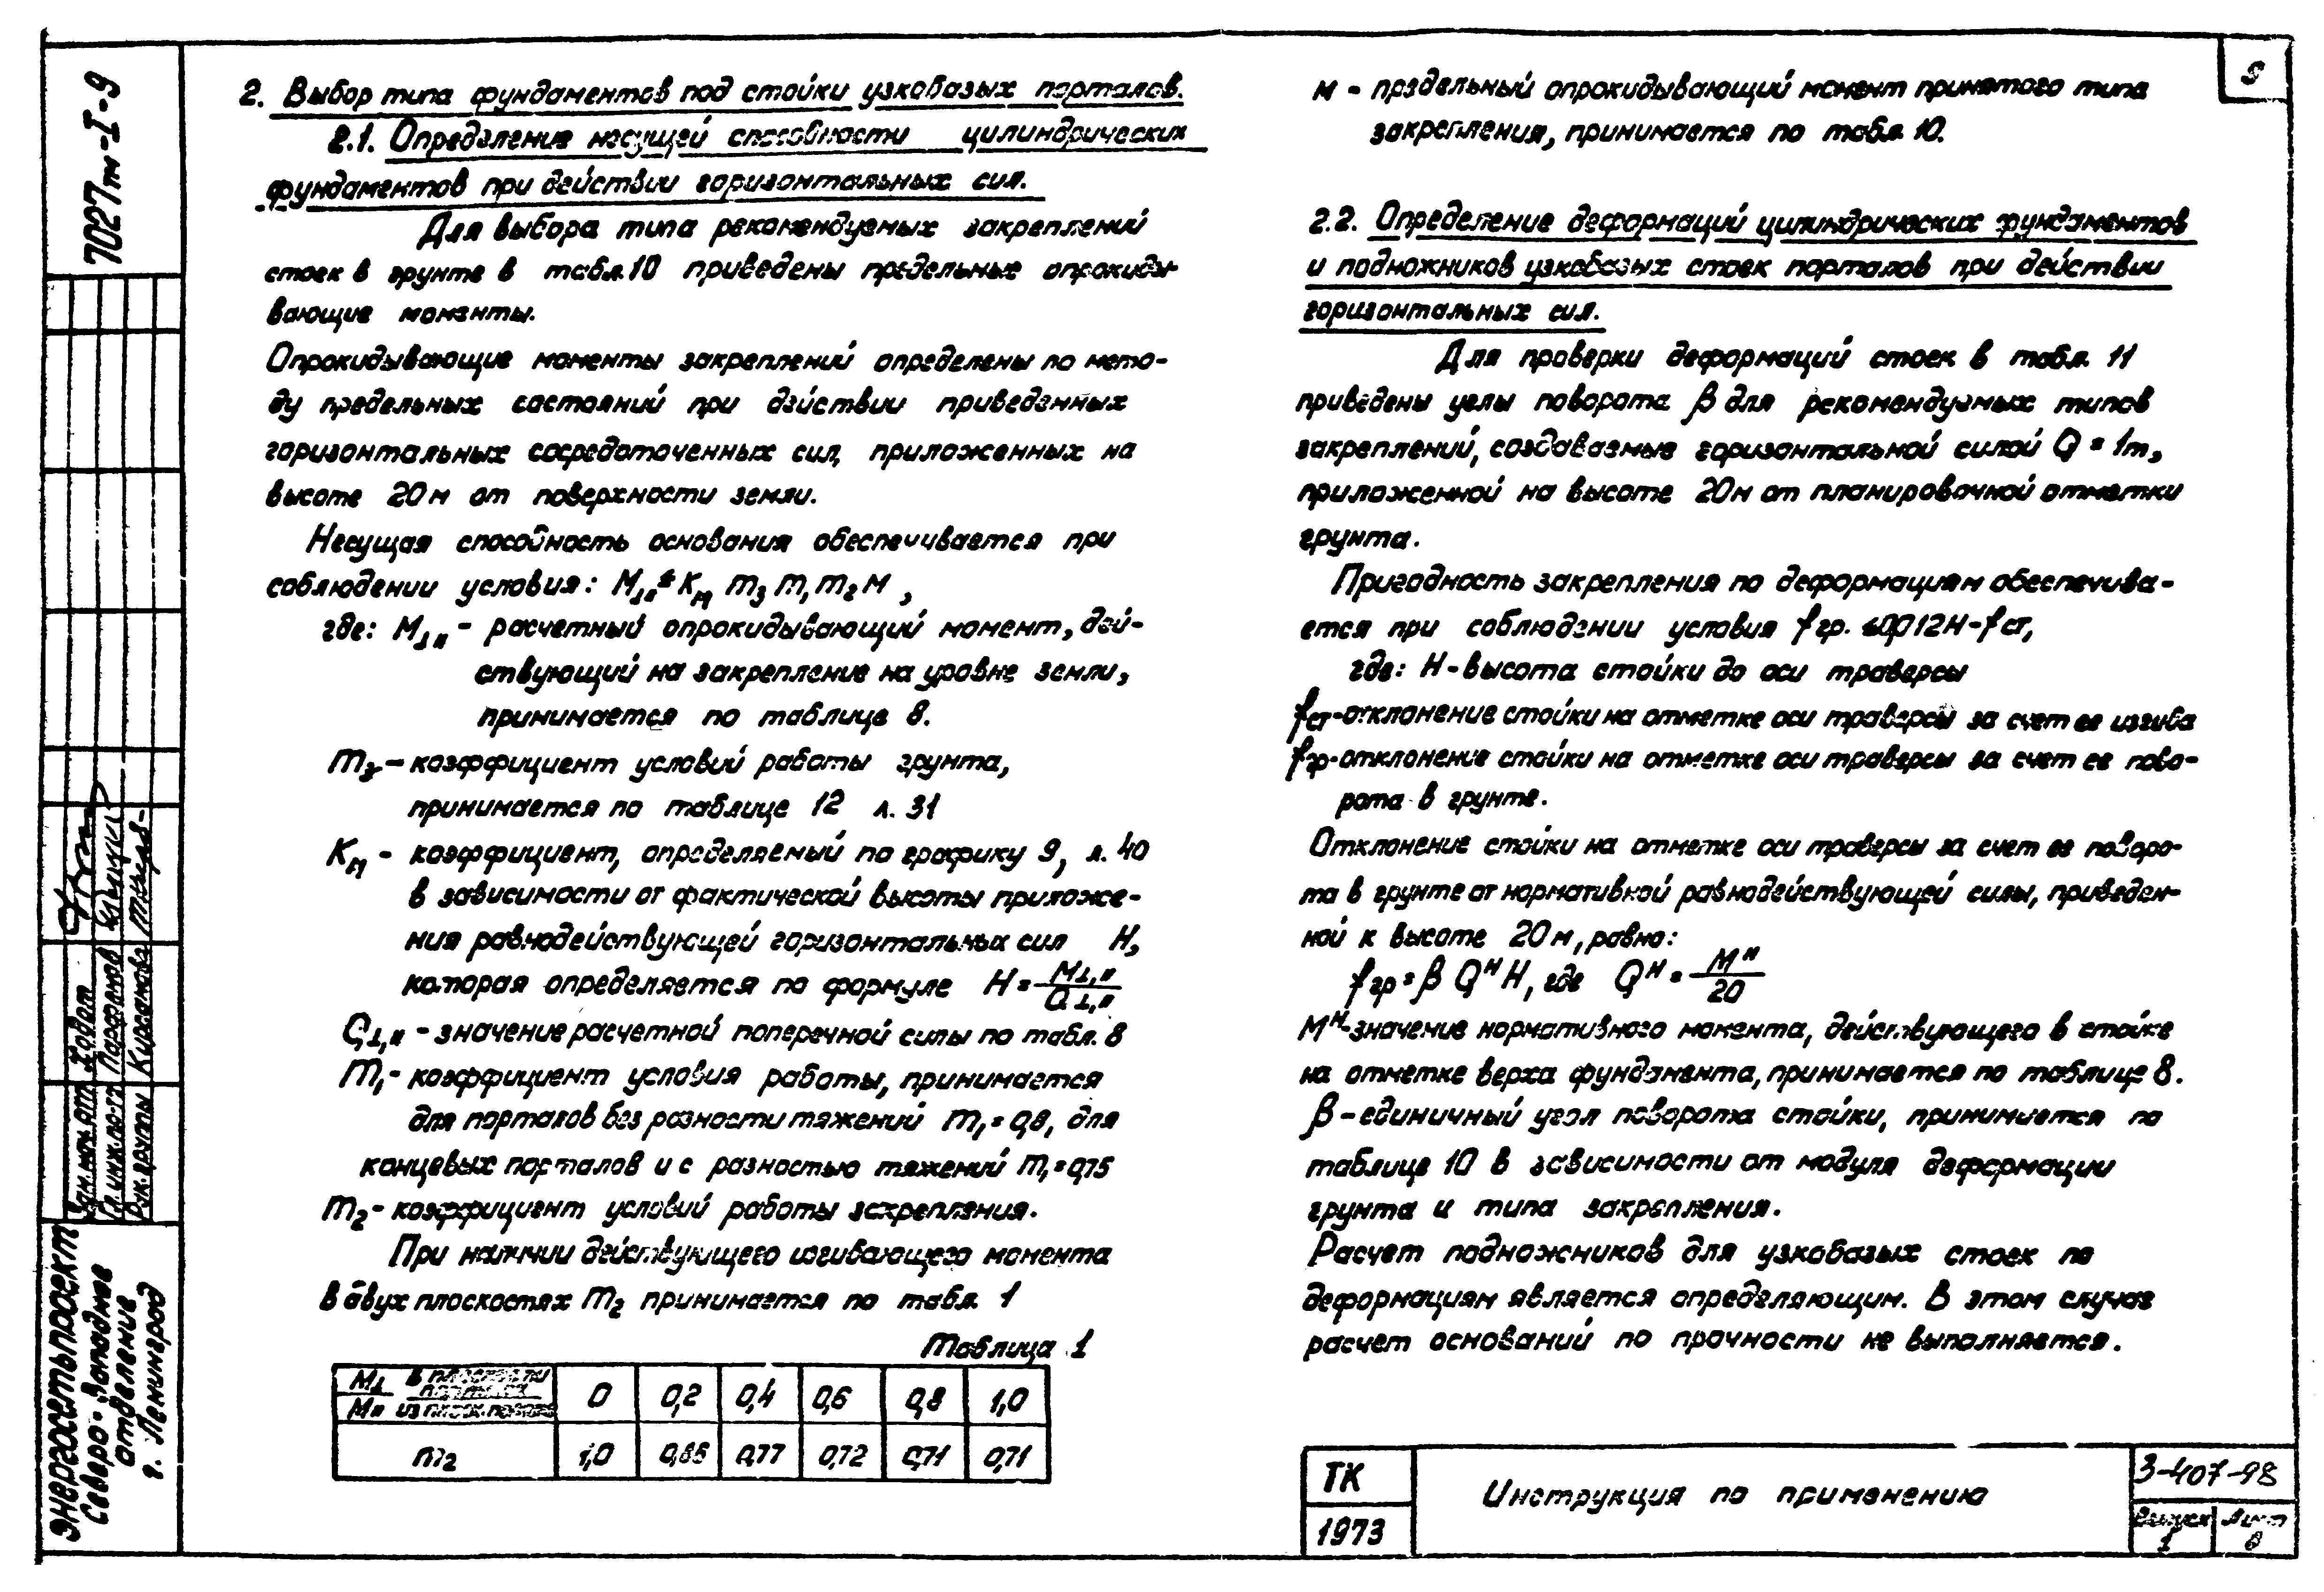 2. Выбор типа фундаментов под стойки узкобазых порталов.
2.1. Определение несущей способности цилиндрических
фундаментов при действии горизонтальных сил.
Для выбора типа рекомендуемых закреплений
стоек в грунте в табл. 10 приведены предельные опрокиды-
вающие моменты.
Опрокидывающие моменты закреплений определены по мето-
ду предельных состояний при действии приведенных
горизонтальных сосредоточенных сил, приложенных на
высоте 20 м от поверхности земли.
Несущая способность основания обеспечивается при
соблюдении условия: М⊥,н ≤ Kм m3 m1 m2 М,
где: М⊥н - расчетный опрокидывающий момент, дей-
ствующий на закрепление на уровне земли,
принимается по таблице 8.
m3 - коэффициент условий работы грунта,
принимается по таблице 12 л. 31
Kм - коэффициент, определяемый по графику 9, л. 40
в зависимости от фактической высоты приложе-
ния равнодействующей горизонтальных сил Н,
которая определяется по формуле Н = М⊥,н / Q⊥,н
Q⊥,н - значение расчетной поперечной силы по табл. 8
m1 - коэффициент условия работы, принимается
для порталов без разности тяжений m1 = 0,8, для
концевых порталов и с разностью тяжений m1 = 0,75
m2 - коэффициент условий работы закрепления.
При наличии действующего изгибающего момента
в двух плоскостях m2 принимается по табл. 1
Таблица 1
М⊥ в плоскости портала / Мн из плоск. портала 0 0,2 0,4 0,6 0,8 1,0
m2 1,0 0,85 0,77 0,72 0,71 0,71
м - предельный опрокидывающий момент принятого типа
закрепления, принимается по табл. 10.
2.2. Определение деформаций цилиндрических фундаментов
и подножников узкобазых стоек порталов при действии
горизонтальных сил.
Для проверки деформаций стоек в табл. 11
приведены углы поворота β для рекомендуемых типов
закреплений, создаваемые горизонтальной силой Q = 1т,
приложенной на высоте 20 м от планировочной отметки
грунта.
Пригодность закрепления по деформациям обеспечива-
ется при соблюдении условия fгр. ≤ 0,012Н - fст,
где: Н - высота стойки до оси траверсы
fст - отклонение стойки на отметке оси траверсы за счет ее изгиба
fгр - отклонение стойки на отметке оси траверсы за счет ее пово-
рота в грунте.
Отклонение стойки на отметке оси траверсы за счет ее поворо-
та в грунте от нормативной равнодействующей силы, приведен-
ной к высоте 20 м, равно:
fгр = β Qᴴ Н, где Qᴴ = Мᴴ / 20
Мᴴ - значение нормативного момента, действующего в стойке
на отметке верха фундамента, принимается по таблице 8.
β - единичный угол поворота стойки, принимается по
таблице 10 в зависимости от модуля деформации
грунта и типа закрепления.
Расчет подножников для узкобазых стоек по
деформациям является определяющим. В этом случае
расчет оснований по прочности не выполняется.
ТК
1973
Инструкция по применению
3-407-98
Выпуск Лист
1 8
9
7027тм-I-9
Зам. нач. отд. Ходот
Гл. инж. пр-та Парфенов
Рук. группы Кирсанова
ЭНЕРГОСЕТЬПРОЕКТ
Северо-Западное
отделение
г. Ленинград